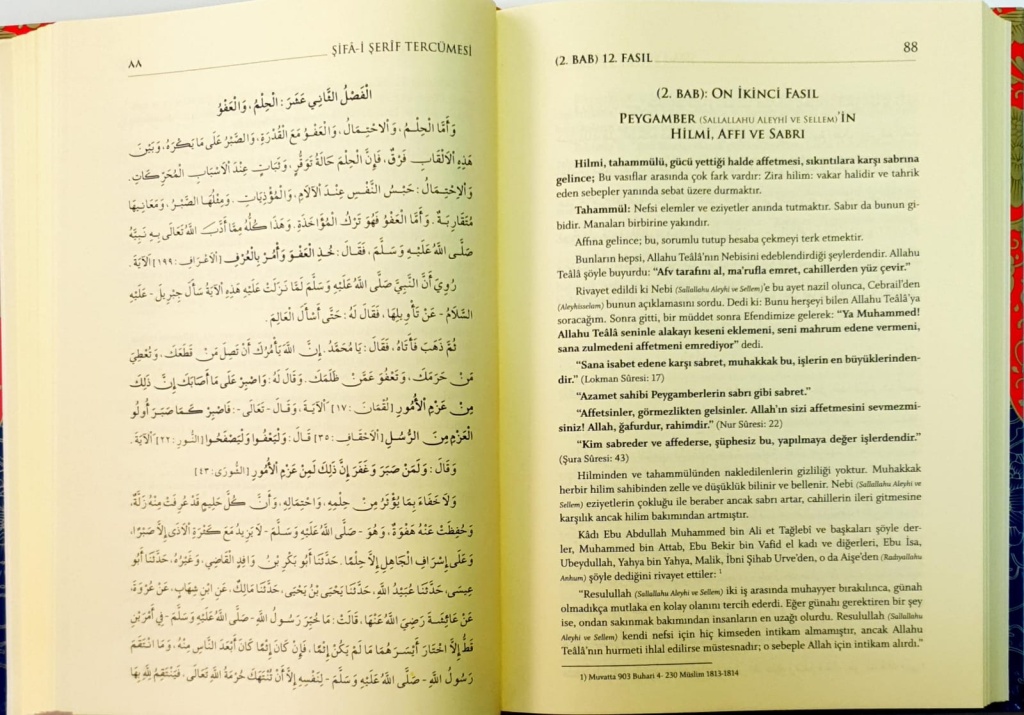 ٨٨ ŞİFÂ-İ ŞERİF TERCÜMESİ
الْفَصْلُ الثَّانِي عَشَرَ : الْحِلْمُ، وَالْعَفْوُ
وَأَمَّا الْحِلْمُ، وَالِاحْتِمَالُ، وَالْعَفْوُ مَعَ الْقُدْرَةِ، وَالصَّبْرُ عَلَى مَا يَكْرَهُ، وَبَيْنَ
هَذِهِ الْأَلْقَابِ فَرْقٌ، فَإِنَّ الْحِلْمَ حَالَةُ تَوَقُّرٍ، وَثَبَاتٍ عِنْدَ الْأَسْبَابِ الْمُحَرِّكَاتِ.
وَالِاحْتِمَالُ: حَبْسُ النَّفْسِ عِنْدَ الْآلَامِ، وَالْمُؤْذِيَاتِ. وَمِثْلُهَا الصَّبْرُ، وَمَعَانِيهَا
مُتَقَارِبَةٌ. وَأَمَّا الْعَفْوُ فَهُوَ تَرْكُ الْمُؤَاخَذَةِ. وَهَذَا كُلُّهُ مِمَّا أَدَّبَ اللهُ تَعَالَى بِهِ نَبِيَّهُ
صَلَّى اللهُ عَلَيْهِ وَسَلَّمَ، فَقَالَ: خُذِ الْعَفْوَ وَأْمُرْ بِالْعُرْفِ [اَلْأَعْرَافِ: ١٩٩] اَلْآيَةَ.
رُوِيَ أَنَّ النَّبِيَّ صَلَّى اللهُ عَلَيْهِ وَسَلَّمَ لَمَّا نَزَلَتْ عَلَيْهِ هَذِهِ الْآيَةُ سَأَلَ جِبْرِيلَ - عَلَيْهِ
السَّلَامُ - عَنْ تَأْوِيلِهَا، فَقَالَ لَهُ: حَتَّى أَسْأَلَ الْعَالِمَ.
ثُمَّ ذَهَبَ فَأَتَاهُ، فَقَالَ: يَا مُحَمَّدُ. إِنَّ اللهَ يَأْمُرُكَ أَنْ تَصِلَ مَنْ قَطَعَكَ، وَتُعْطِيَ
مَنْ حَرَمَكَ، وَتَعْفُوَ عَمَّنْ ظَلَمَكَ. وَقَالَ لَهُ: وَاصْبِرْ عَلَى مَا أَصَابَكَ إِنَّ ذَلِكَ
مِنْ عَزْمِ الْأُمُورِ [لُقْمَانَ: ١٧] اَلْآيَةَ. وَقَالَ - تَعَالَى -: فَاصْبِرْ كَمَا صَبَرَ أُولُو
الْعَزْمِ مِنَ الرُّسُلِ [اَلْأَحْقَافِ: ٣٥] قَالَ: وَلْيَعْفُوا وَلْيَصْفَحُوا [النُّورِ: ٢٢] اَلْآيَةَ.
وَقَالَ: وَلَمَنْ صَبَرَ وَغَفَرَ إِنَّ ذَلِكَ لَمِنْ عَزْمِ الْأُمُورِ [الشُّورَى: ٤٣]
وَلَا خَفَاءَ بِمَا يُؤْثَرُ مِنْ حِلْمِهِ، وَاحْتِمَالِهِ، وَأَنَّ كُلَّ حَلِيمٍ قَدْ عُرِفَتْ مِنْهُ زَلَّةٌ،
وَحُفِظَتْ عَنْهُ هَفْوَةٌ، وَهُوَ - صَلَّى اللهُ عَلَيْهِ وَسَلَّمَ - لَا يَزِيدُ مَعَ كَثْرَةِ الْأَذَى إِلَّا صَبْرًا،
وَعَلَى إِسْرَافِ الْجَاهِلِ إِلَّا حِلْمًا. حَدَّثَنَا أَبُو بَكْرِ بْنُ وَافِدٍ الْقَاضِي، وَغَيْرُهُ، حَدَّثَنَا أَبُو
عِيسَى، حَدَّثَنَا عُبَيْدُ اللهِ، حَدَّثَنَا يَحْيَى بْنُ يَحْيَى، حَدَّثَنَا مَالِكٌ، عَنِ ابْنِ شِهَابٍ، عَنْ عُرْوَةَ،
عَنْ عَائِشَةَ رَضِيَ اللهُ عَنْهَا، قَالَتْ: مَا خُيِّرَ رَسُولُ اللهِ - صَلَّى اللهُ عَلَيْهِ وَسَلَّمَ - فِي أَمْرَيْنِ
قَطُّ إِلَّا اخْتَارَ أَيْسَرَهُمَا مَا لَمْ يَكُنْ إِثْمًا، فَإِنْ كَانَ إِثْمًا كَانَ أَبْعَدَ النَّاسِ مِنْهُ، وَمَا انْتَقَمَ
رَسُولُ اللهِ - صَلَّى اللهُ عَلَيْهِ وَسَلَّمَ - لِنَفْسِهِ إِلَّا أَنْ تُنْتَهَكَ حُرْمَةُ اللهِ تَعَالَى، فَيَنْتَقِمُ لِلَّهِ بِهَا
(2. BAB) 12. FASIL 88
(2. BAB): ON İKİNCİ FASIL
PEYGAMBER (SALLALLAHU ALEYHİ VE SELLEM)'İN
HİLMİ, AFFI VE SABRI
Hilmi, tahammülü, gücü yettiği halde affetmesi, sıkıntılara karşı sabrına
gelince; Bu vasıflar arasında çok fark vardır: Zira hilim: vakar halidir ve tahrik
eden sebepler yanında sebat üzere durmaktır.
Tahammül: Nefsi elemler ve eziyetler anında tutmaktır. Sabır da bunun gi-
bidir. Manaları birbirine yakındır.
Affına gelince; bu, sorumlu tutup hesaba çekmeyi terk etmektir.
Bunların hepsi, Allahu Teâlâ'nın Nebisini edeblendirdiği şeylerdendir. Allahu
Teâlâ şöyle buyurdu: "Afv tarafını al, ma'rufla emret, cahillerden yüz çevir."
Rivayet edildi ki Nebi (Sallallahu Aleyhi ve Sellem)'e bu ayet nazil olunca, Cebrail'den
(Aleyhisselam) bunun açıklamasını sordu. Dedi ki: Bunu herşeyi bilen Allahu Teâlâ'ya
soracağım. Sonra gitti, bir müddet sonra Efendimize gelerek: "Ya Muhammed!
Allahu Teâlâ seninle alakayı keseni eklemeni, seni mahrum edene vermeni,
sana zulmedeni affetmeni emrediyor" dedi.
"Sana isabet edene karşı sabret, muhakkak bu, işlerin en büyüklerinden-
dir." (Lokman Sûresi: 17)
"Azamet sahibi Peygamberlerin sabrı gibi sabret."
"Affetsinler, görmezlikten gelsinler. Allah'ın sizi affetmesini sevmezmi-
siniz! Allah, ğafurdur, rahimdir." (Nur Sûresi: 22)
"Kim sabreder ve affederse, şüphesiz bu, yapılmaya değer işlerdendir."
(Şura Sûresi: 43)
Hilminden ve tahammülünden nakledilenlerin gizliliği yoktur. Muhakkak
herbir hilim sahibinden zelle ve düşüklük bilinir ve bellenir. Nebi (Sallallahu Aleyhi ve
Sellem) eziyetlerin çokluğu ile beraber ancak sabrı artar, cahillerin ileri gitmesine
karşılık ancak hilim bakımından artmıştır.
Kâdı Ebu Abdullah Muhammed bin Ali et Tağlebî ve başkaları şöyle der-
ler, Muhammed bin Attab, Ebu Bekir bin Vafid el kadı ve diğerleri, Ebu İsa,
Ubeydullah, Yahya bin Yahya, Malik, İbni Şihab Urve'den, o da Aişe'den (Radıyallahu
Anhum) şöyle dediğini rivayet ettiler: 1
"Resulullah (Sallallahu Aleyhi ve Sellem) iki iş arasında muhayyer bırakılınca, günah
olmadıkça mutlaka en kolay olanını tercih ederdi. Eğer günahı gerektiren bir şey
ise, ondan sakınmak bakımından insanların en uzağı olurdu. Resulullah (Sallallahu
Aleyhi ve Sellem) kendi nefsi için hiç kimseden intikam almamıştır, ancak Allahu
Teâlâ'nın hurmeti ihlal edilirse müstesnadır; o sebeple Allah için intikam alırdı."
1) Muvatta 903 Buhari 4- 230 Müslim 1813-1814